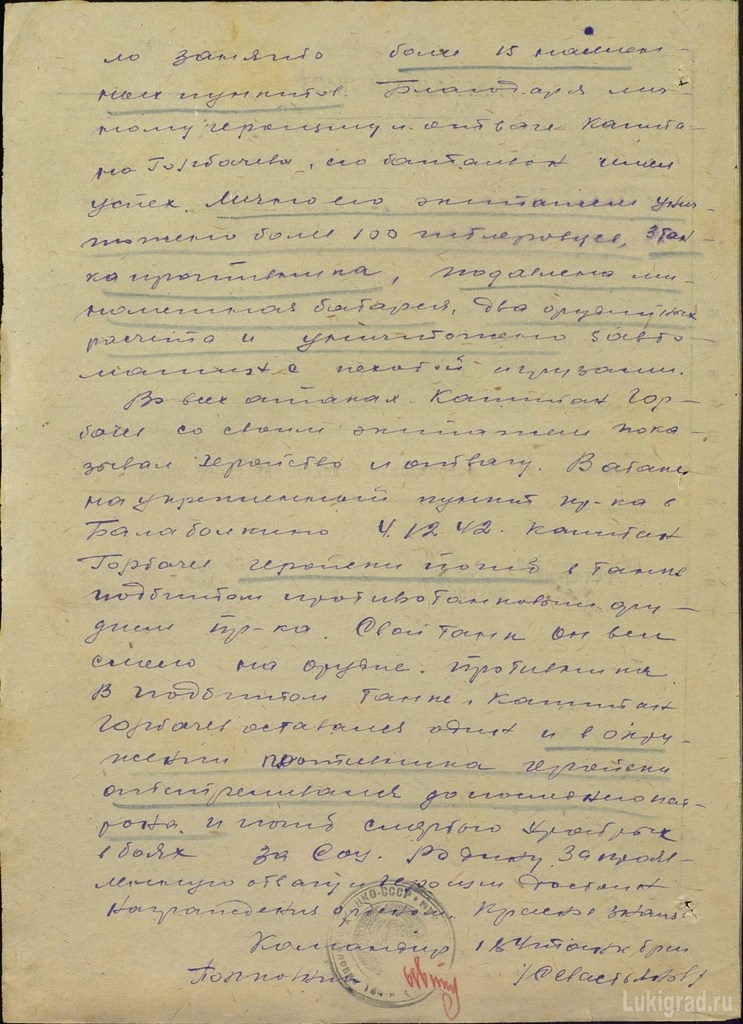 ло занято более 15 населен-
ных пунктов. Благодаря лич-
ному героизму и отваге Капита-
на Горбачева, его батальон имел
успех. Лично его экипажем унич-
тожено более 100 гитлеровцев, 3 тан-
ка противника, подавлена ми-
нометная батарея, два орудийных
расчета и уничтожено 5 авто-
машин с пехотой и грузами.
Во всех атаках. Капитан Гор-
бачев со своим экипажем пока-
зывал геройство и отвагу. В атаке
на укрепленный пункт пр-ка в
Балаболкино 4.12.42. Капитан
Горбачев геройски погиб в танке
подбитом противотанковым ору-
дием пр-ка. Свой танк он вел
смело на орудие. противника
В подбитом танке, Капитан
Горбачев оставался один и в окру-
жении противника геройски
отстреливался до последнего пат-
рона. и погиб смертью храбрых
в боях за Соц. Родину. За прояв-
ленную отвагу и героизм достоин
Награждения орденом. Красное знамя
Командир 184 танк бриг
Полковник /Севастьянов/
НКО-СССР
Lukigrad.ru